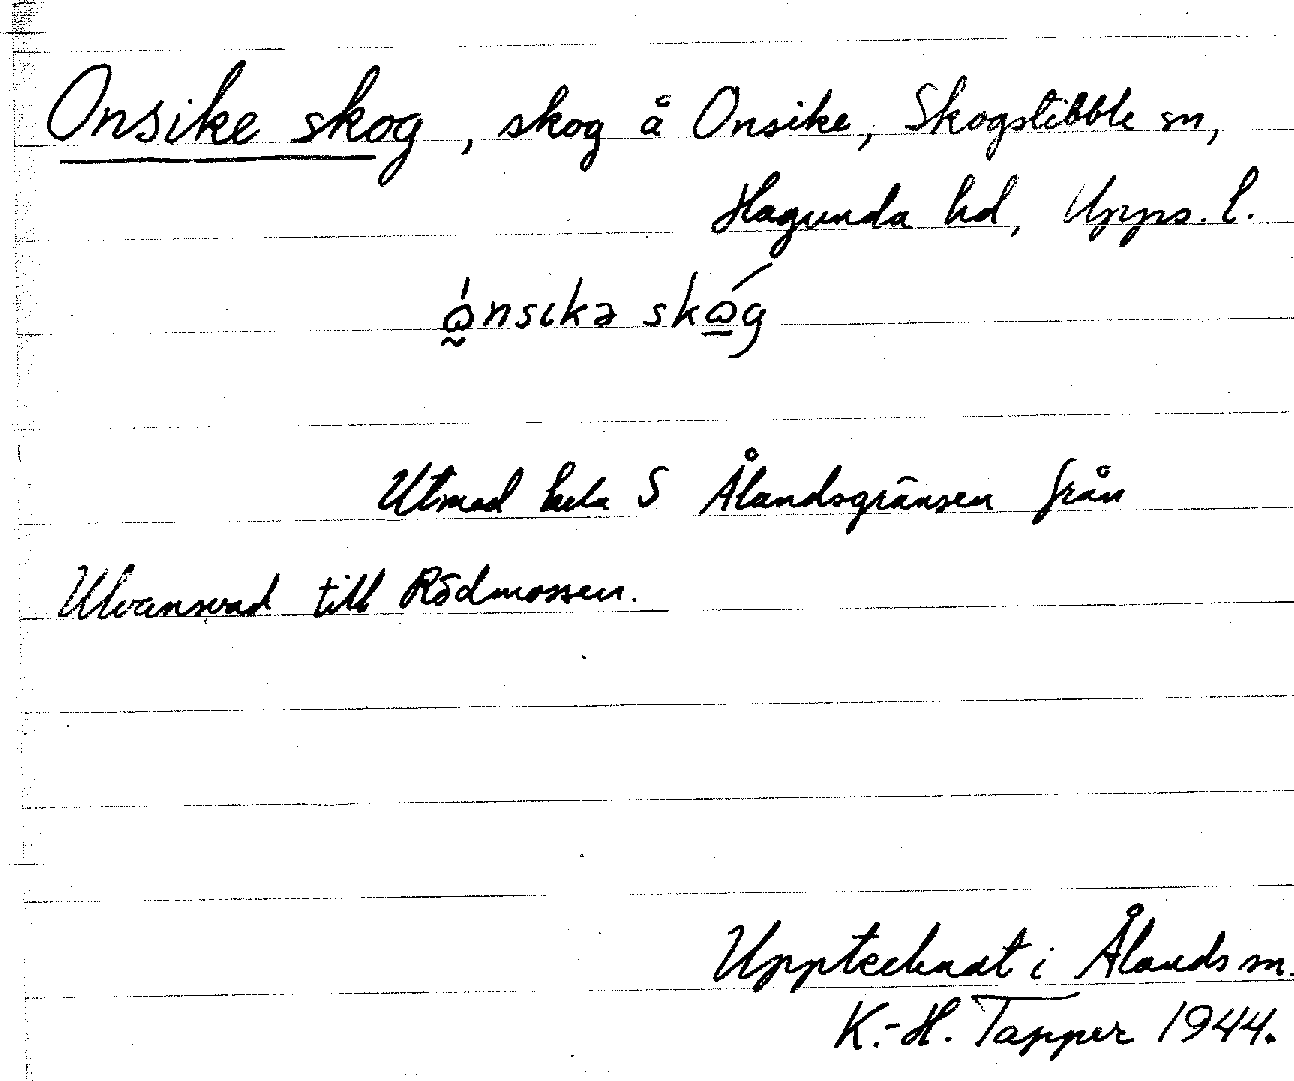 Onsike skog, skog å Onsike, Skogstibble sn,
Hagunda hd, Upps. l.
ò̰nsikə skó̱g
Utmed hela S Ålandsgränsen från
till Rödmossen.
Upptecknat i Ålands sn.
K.-H. Tapper 1944.